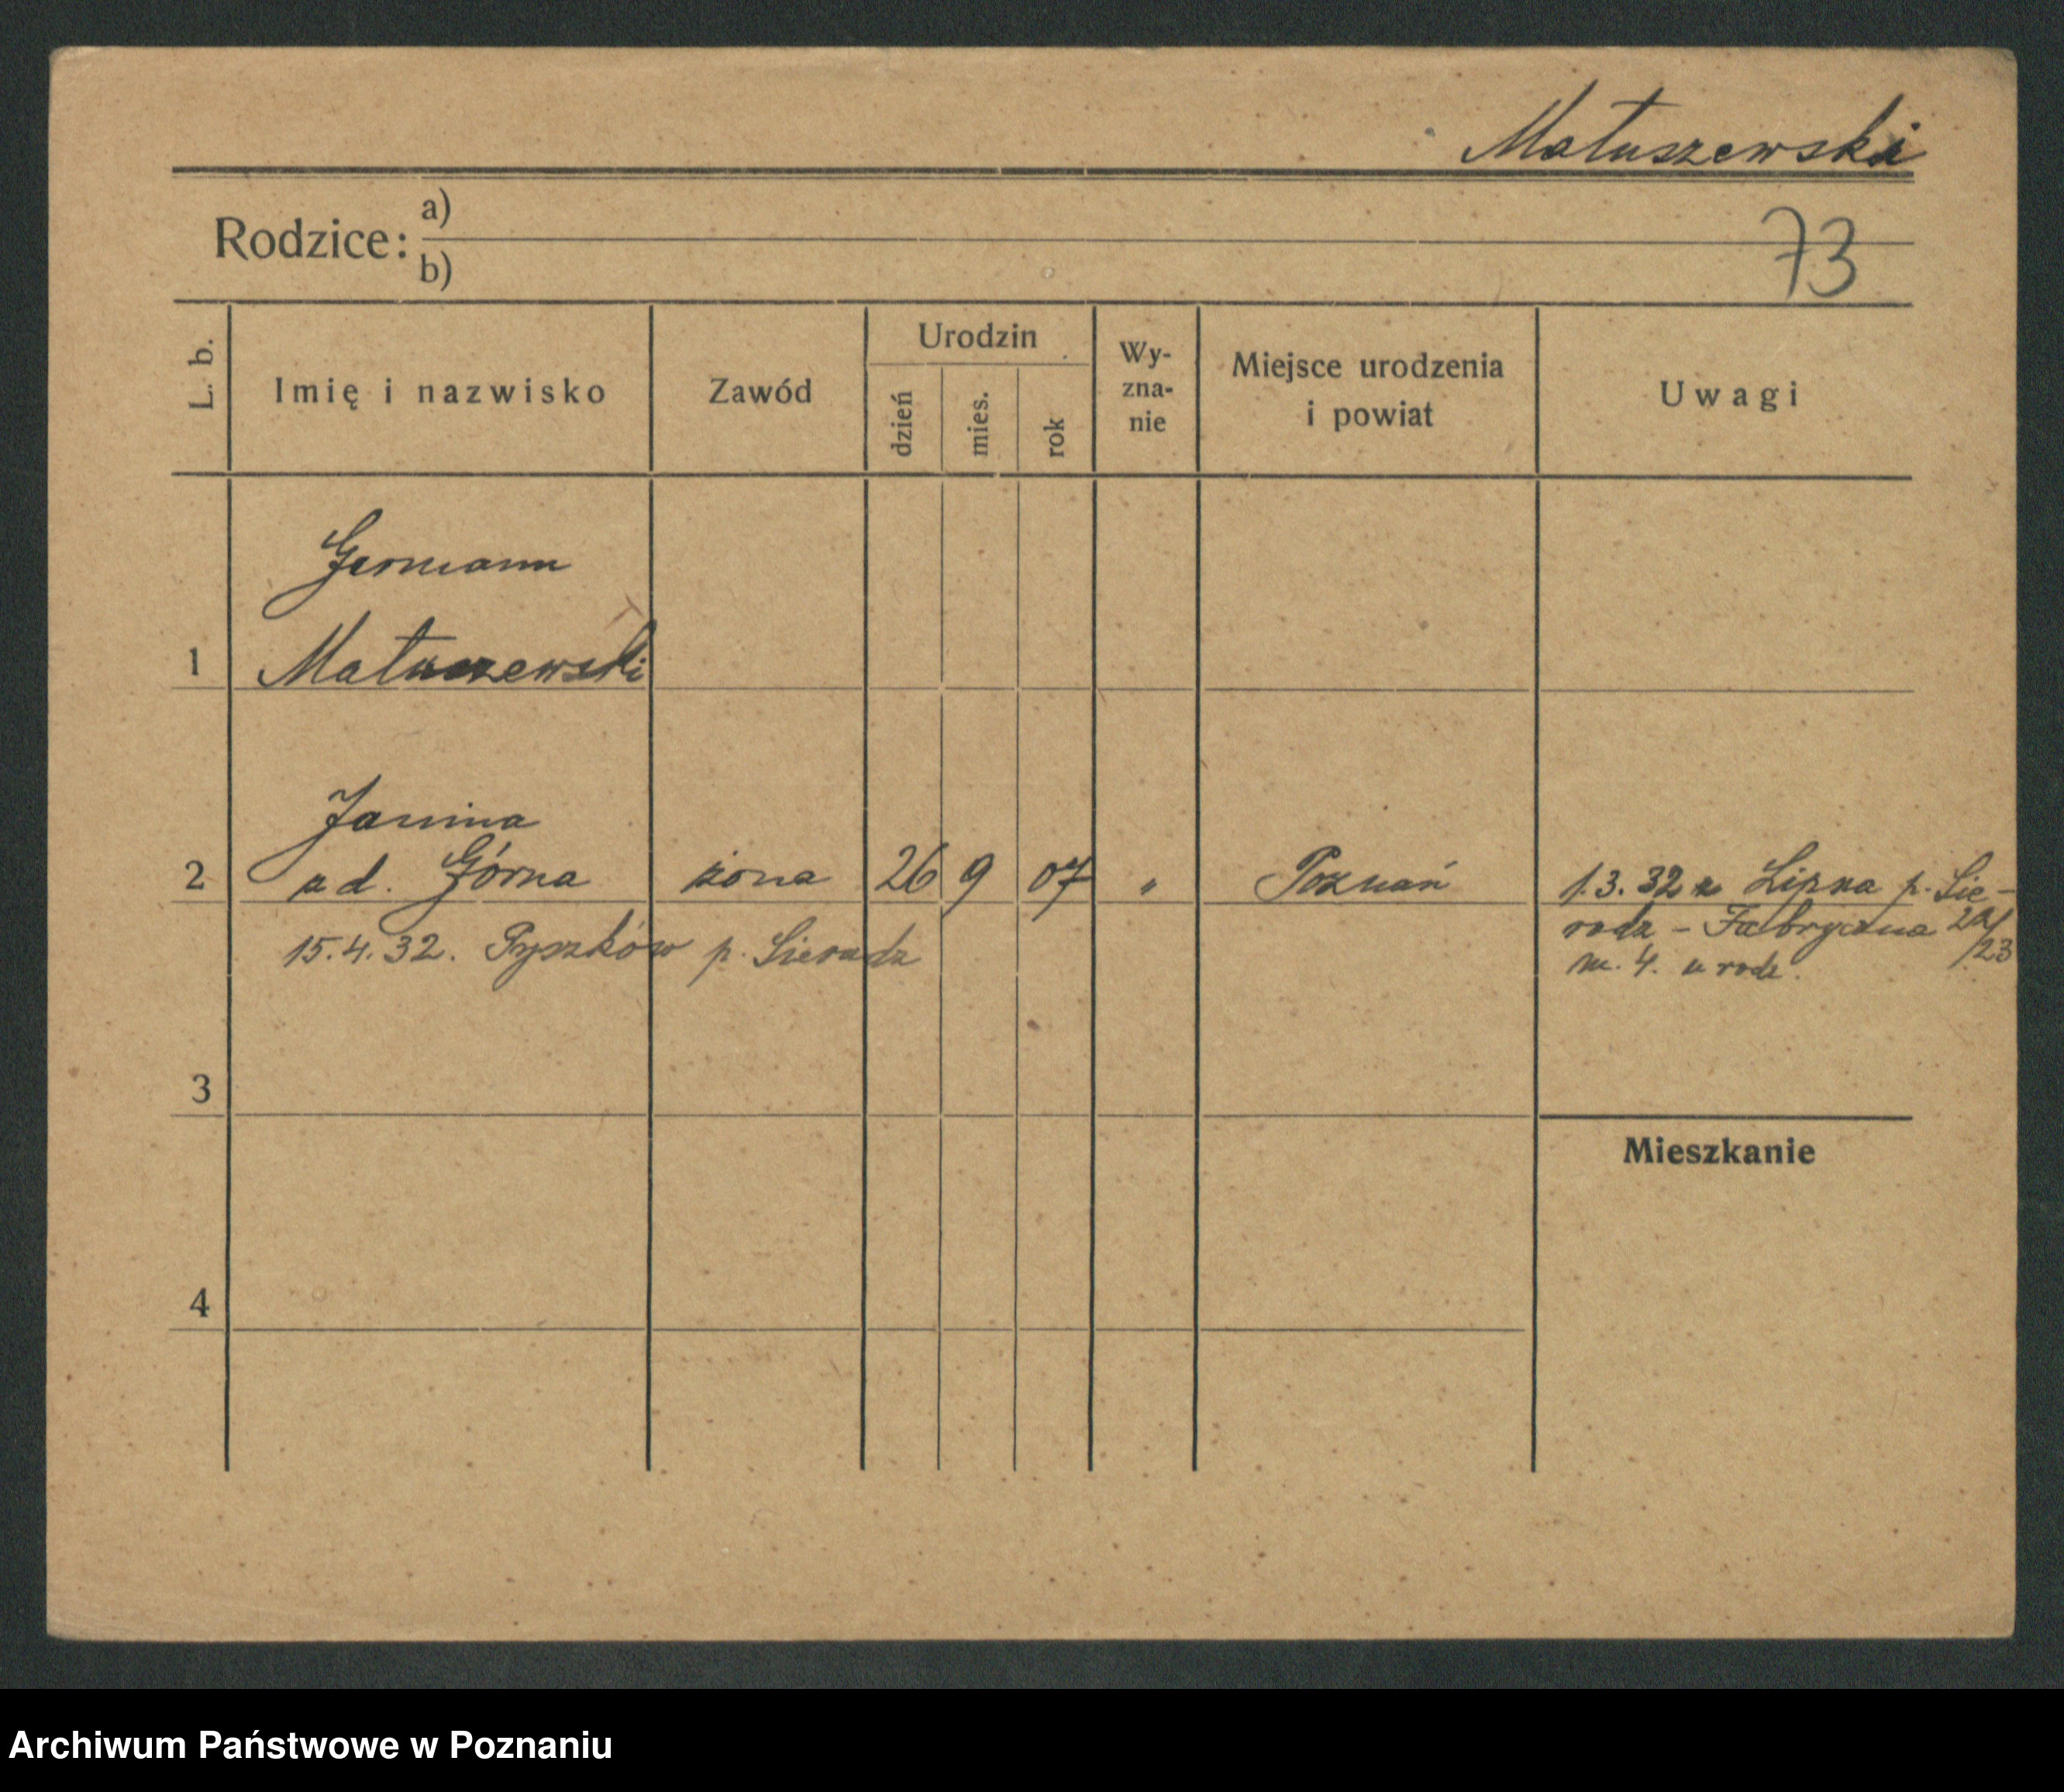 Matuszewski
Rodzice: a)
b)
73
L. b.
Imię i nazwisko
Zawód
Urodzin
dzień
mies.
rok
Wy-
zna-
nie
Miejsce urodzenia
i powiat
Uwagi
Germann
1 Matuszewski
Janina
2 z d. Górna żona 26 9 07 " Poznań
1.3.32 z Lipna p. Sie-
radz - Fabryczna 22/
23
m. 4. u rodz.
15.4.32. Pyszków p. Sieradz
3
Mieszkanie
4
Archiwum Państwowe w Poznaniu